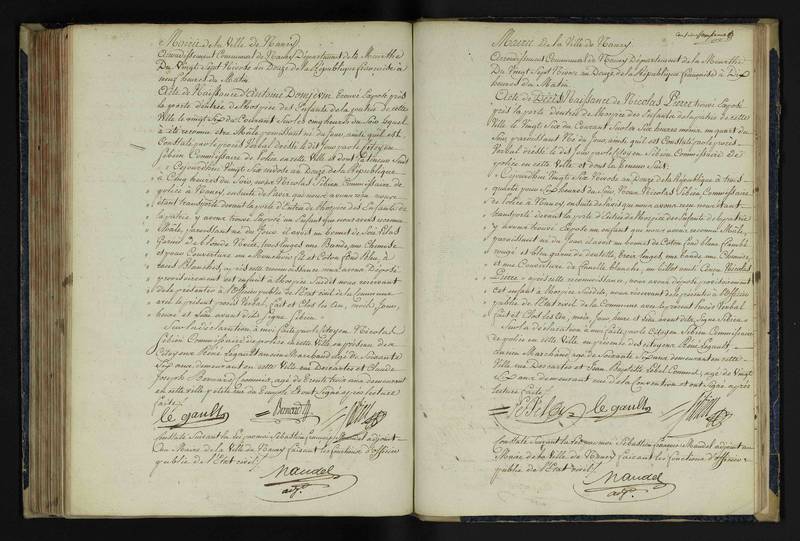 Mairie de la Ville de Nancy
Arrondissement Communal de Nancy Département de la Meurthe
Du Vingt Sept Nivose an Douze de la République française à
neuf heures du Matin
Acte de Naissance d'Antoine Domjevin trouvé Exposé près
la porte d'entrée de l'hospice des Enfants de la patrie de cette
Ville le vingt Six du Courant Sur les cinq heures du Soir, lequel
à été reconnu être Mâle, paroissant né du Jour, ainsi qu'il est
Constaté par le procès Verbal dressé le dit Jour par le Citoyen
Sebien Commissaire de police en cette Ville et dont la teneur Suit
Cejourd'huy Vingt Six nivose an Douze de la République
à Cinq heures du Soir, nous Nicolas Sebien Commissaire de
police à Nancy, ensuite de l'avis qui nous a été donné nous
étant transporté devant la porte d'Entrée de l'hospice des Enfants de
la patrie y avons trouvé Exposé un Enfant que nous avons reconnu
Mâle, paroissant né du Jour il avoit un bonnet de
garni de blonde Noire, trois linges une Bande, une Chemise
et pour Couverture un Mouchoir fil et Coton fond Bleu, à
raies Blanches, après cette reconnoissance nous avons Déposé
provisoirement cet enfant à l'hospice Susdit nous reservant
de le presenter à l'Officier public de l'Etat civil de la Commune
avec le présent procès Verbal, fait et Clos les an, mois Jour,
heure et lieu avant dits Signé Sebien
Sur la déclaration à nous faite par le Citoyen Nicolas
Sebien Commissaire de police en cette Ville, en présence des
Citoyens René Legault ancien Marchand agé de Soixante
Six ans demeurant en cette Ville rue Descartes et Claude
Joseph Bernard Commis, agé de Trente trois ans demeurant
en cette ville et ont Signé après lecture
faite
le gault
Bernard
Sebien
Constaté Suivant la Loi par moi Sébastien François Mandel adjoint
du Maire de la Ville de Nancy faisant les fonctions d'officier
public de l'Etat civil
Mandel
adjt.
Mairie de la Ville de Nancy
Arrondissement Communal de Nancy Département de la Meurthe
Du Vingt Sept Nivose an Douze de la République française à Dix
heures du Matin
Acte de Naissance de Nicolas Pierre trouvé Exposé
près la porte d'entrée de l'hospice des Enfants de la patrie de cette
Ville le Vingt Six du Courant Sur les Six heures moins un quart du
Soir, paroissant Né du Jour ainsi qu'il est Constaté par le procès
Verbal dressé le dit Jour par le Citoyen Sebien Commissaire de
police en cette Ville et dont la teneur Suit
Cejourd'huy Vingt Six Nivose an Douze de la République à trois
quarts pour Six heures du Soir, Nous Nicolas Sebien Commissaire
de police à Nancy ensuite de l'avis que nous avons reçu nous étant
transporté devant la porte d'Entrée de l'hospice des Enfants de la patrie
y avons trouvé Exposé un enfant que nous avons reconnu Mâle,
paroissant né du Jour il avoit un bonnet de Coton fond blanc
rouge et bleu garni de dentelle, trois Linges, une bande une Chemise,
et une Couverture de flanelle blanche, un billet ainsi Conçu Nicolas
Pierre après cette reconnoissance, nous avons déposé provisoirement
cet enfant à l'hospice Susdit, nous reservant de le présenter à l'Officier
public de l'Etat civil de la Commune avec le présent procès Verbal
fait et Clos les an, mois Jour heure et lieu avant dits, Signé Sebien
Sur la déclaration à nous faite par le Citoyen Sebien Commissaire
de police en cette Ville, en présence des citoyens René Legault
ancien Marchand agé de Soixante Six ans demeurant en cette
Ville rue Descartes et Jean Baptiste Lebel Commis, agé de Vingt
Six ans demeurant rue de la Convention et ont Signé après
lecture faite
le gault
Sebien
Constaté Suivant la Loi par moi Sébastien François Mandel adjoint au
Maire de la Ville de Nancy faisant les fonctions d'officier
public de l'Etat civil
Mandel
adjt.